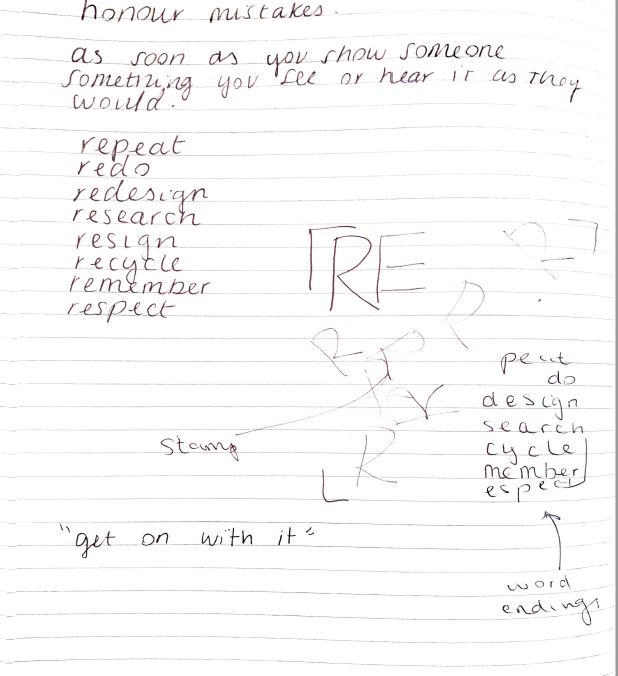 honour mistakes.
as soon as you show someone
something you see or hear it as they
would.
repeat
redo
redesign
research
resign
recycle
remember
respect
RE
R
R
R
peat
do
design
search
cycle
member
espect
stamp
R
"get on with it"
word
endings